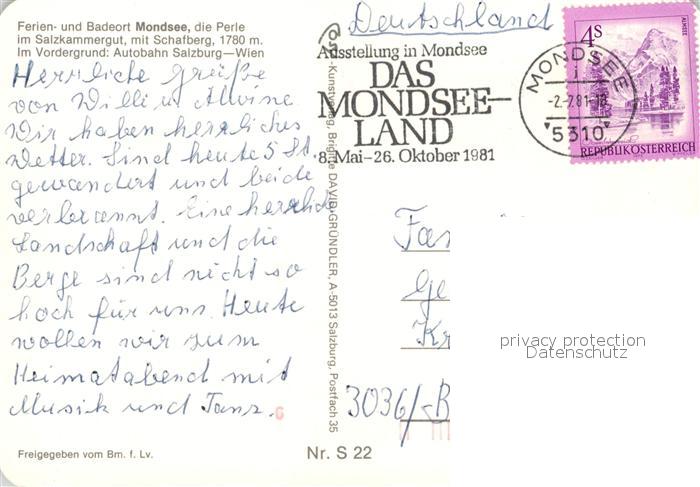 Ferien- und Badeort Mondsee, die Perle
im Salzkammergut, mit Schafberg, 1780 m.
Im Vordergrund: Autobahn Salzburg—Wien
Herrliche Grüße
von Willi u Alwine
Wir haben herrliches
Wetter. Sind heute 5 St.
gewandert und beide
verbrannt. Eine herrliche
Landschaft und die
Berge sind nicht so
hoch für uns. Heute
wollen wir zum
Heimatabend mit
Musik und Tanz.
Freigegeben vom Bm. f. Lv.
Nr. S 22
Kunstverlag, Brigitte DAVID-GRÜNDLER, A-5013 Salzburg, Postfach 35
Deutschland
Ausstellung in Mondsee
DAS
MONDSEE—
LAND
8. Mai—26. Oktober 1981
MONDSEE
-2.-7.81-18
5310
4S
ALMSEE
REPUBLIK ÖSTERREICH
Fa
Ge
Kr
3036/-B
privacy protection
Datenschutz